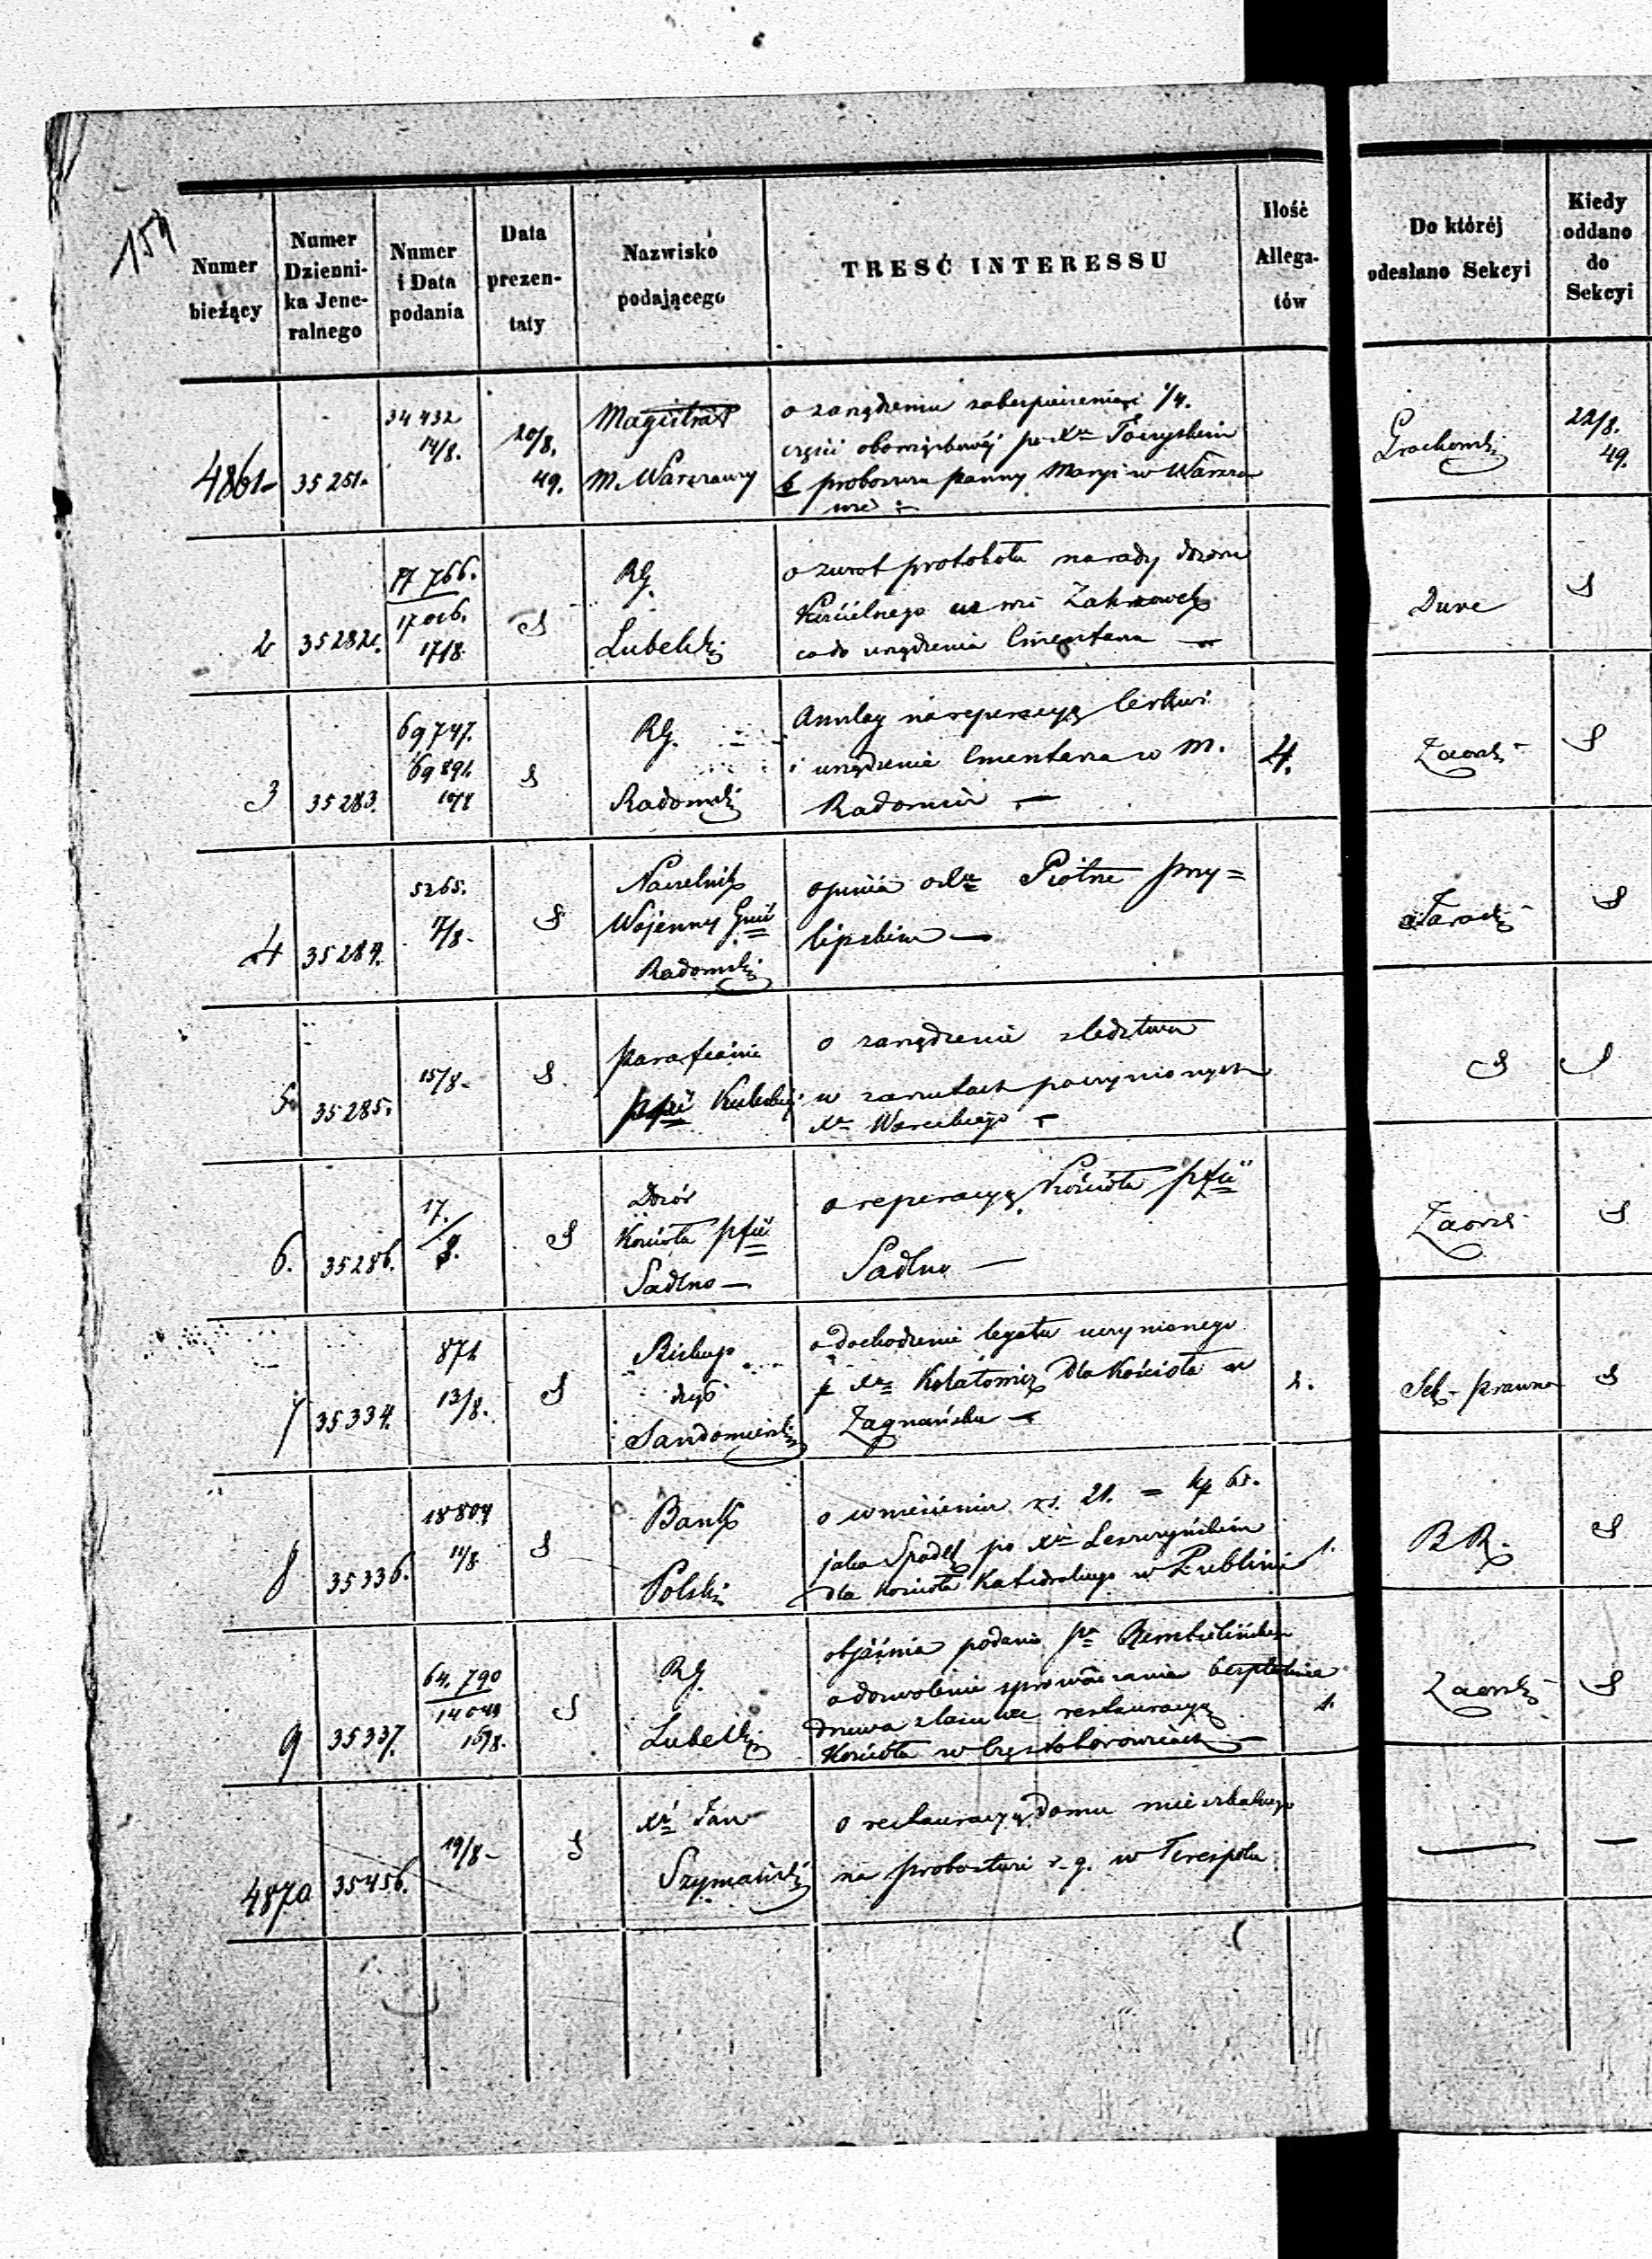 159
Numer bieżący
Numer Dzienni-
ka Jene-
ralnego
Numer i Data podania
Data prezen-
taty
Nazwisko podającego
TRESĆ INTERESSU
Ilość Allega-
tów
Do któréj odesłano Sekcyi
Kiedy oddano do Sekcyi
4861
35251.
34432
14/8.
20/8.
49.
Magistrat
M. Warszawy
o zarządzeniu zabezpieczenia 1/4.
części obowiązkowéj po Xu
proboszczu Panny Maryi w Warsza
wie
22/8.
49.
2
35282.
17/8.
RG.
Lubelski
o zwrot protokołu narady dozoru
Kościelnego
co do urządzenia Cmentarza —
S
3
35283.
69747.
RG.
Radomski
Anszlag na reperacyą Cerkwi
i urządzenie Cmentarza w M.
Radomiu —
4.
S
4
35284.
5265.
17/8.
S
Naczelnik
Wojenny Gnii
Radomski
opinia o Xu Piotrze Przy=
lipskim —
S
5.
35285.
15/8.
S
Parafianie
pfii
o zarządzenie śledztwa
w zarzutach poczynionych
S
S
6.
35286.
17.
/8.
S
Dozór
Kościoła pfii
Sadlno —
o reperacyą Kościoła pfii
Sadlno —
S
7
35334.
871
13/8.
S
Biskup
dyć
Sandomierski
o dochodzenie legatu uczynionego
p Xa Kołątomię dla Kościoła w
Zagnańsku —
2.
Sek. prawna
S
8
35336.
18804
11/8
S
Bank
Polski
o wniesieniu rs. 21. = kp 65.
jako Spadek po Xu Leszczyńskim
dla Kościoła Katedralnego w Lublinie
1.
BR.
S
9
35337.
64,790
S
RG
Lubelski
objaśnia podanie pa Rembielińskiego
o dozwolenie sprowadzania bezpłatnie
drzewa z lasu na restauracyą
Kościoła w Częstoborowicach —
1.
S
4870
35456.
19/8
S
Xdz Jan
Szymański
o restauracyą domu mieszkalnego
na probostwie r. g. w Terespolu
—
—